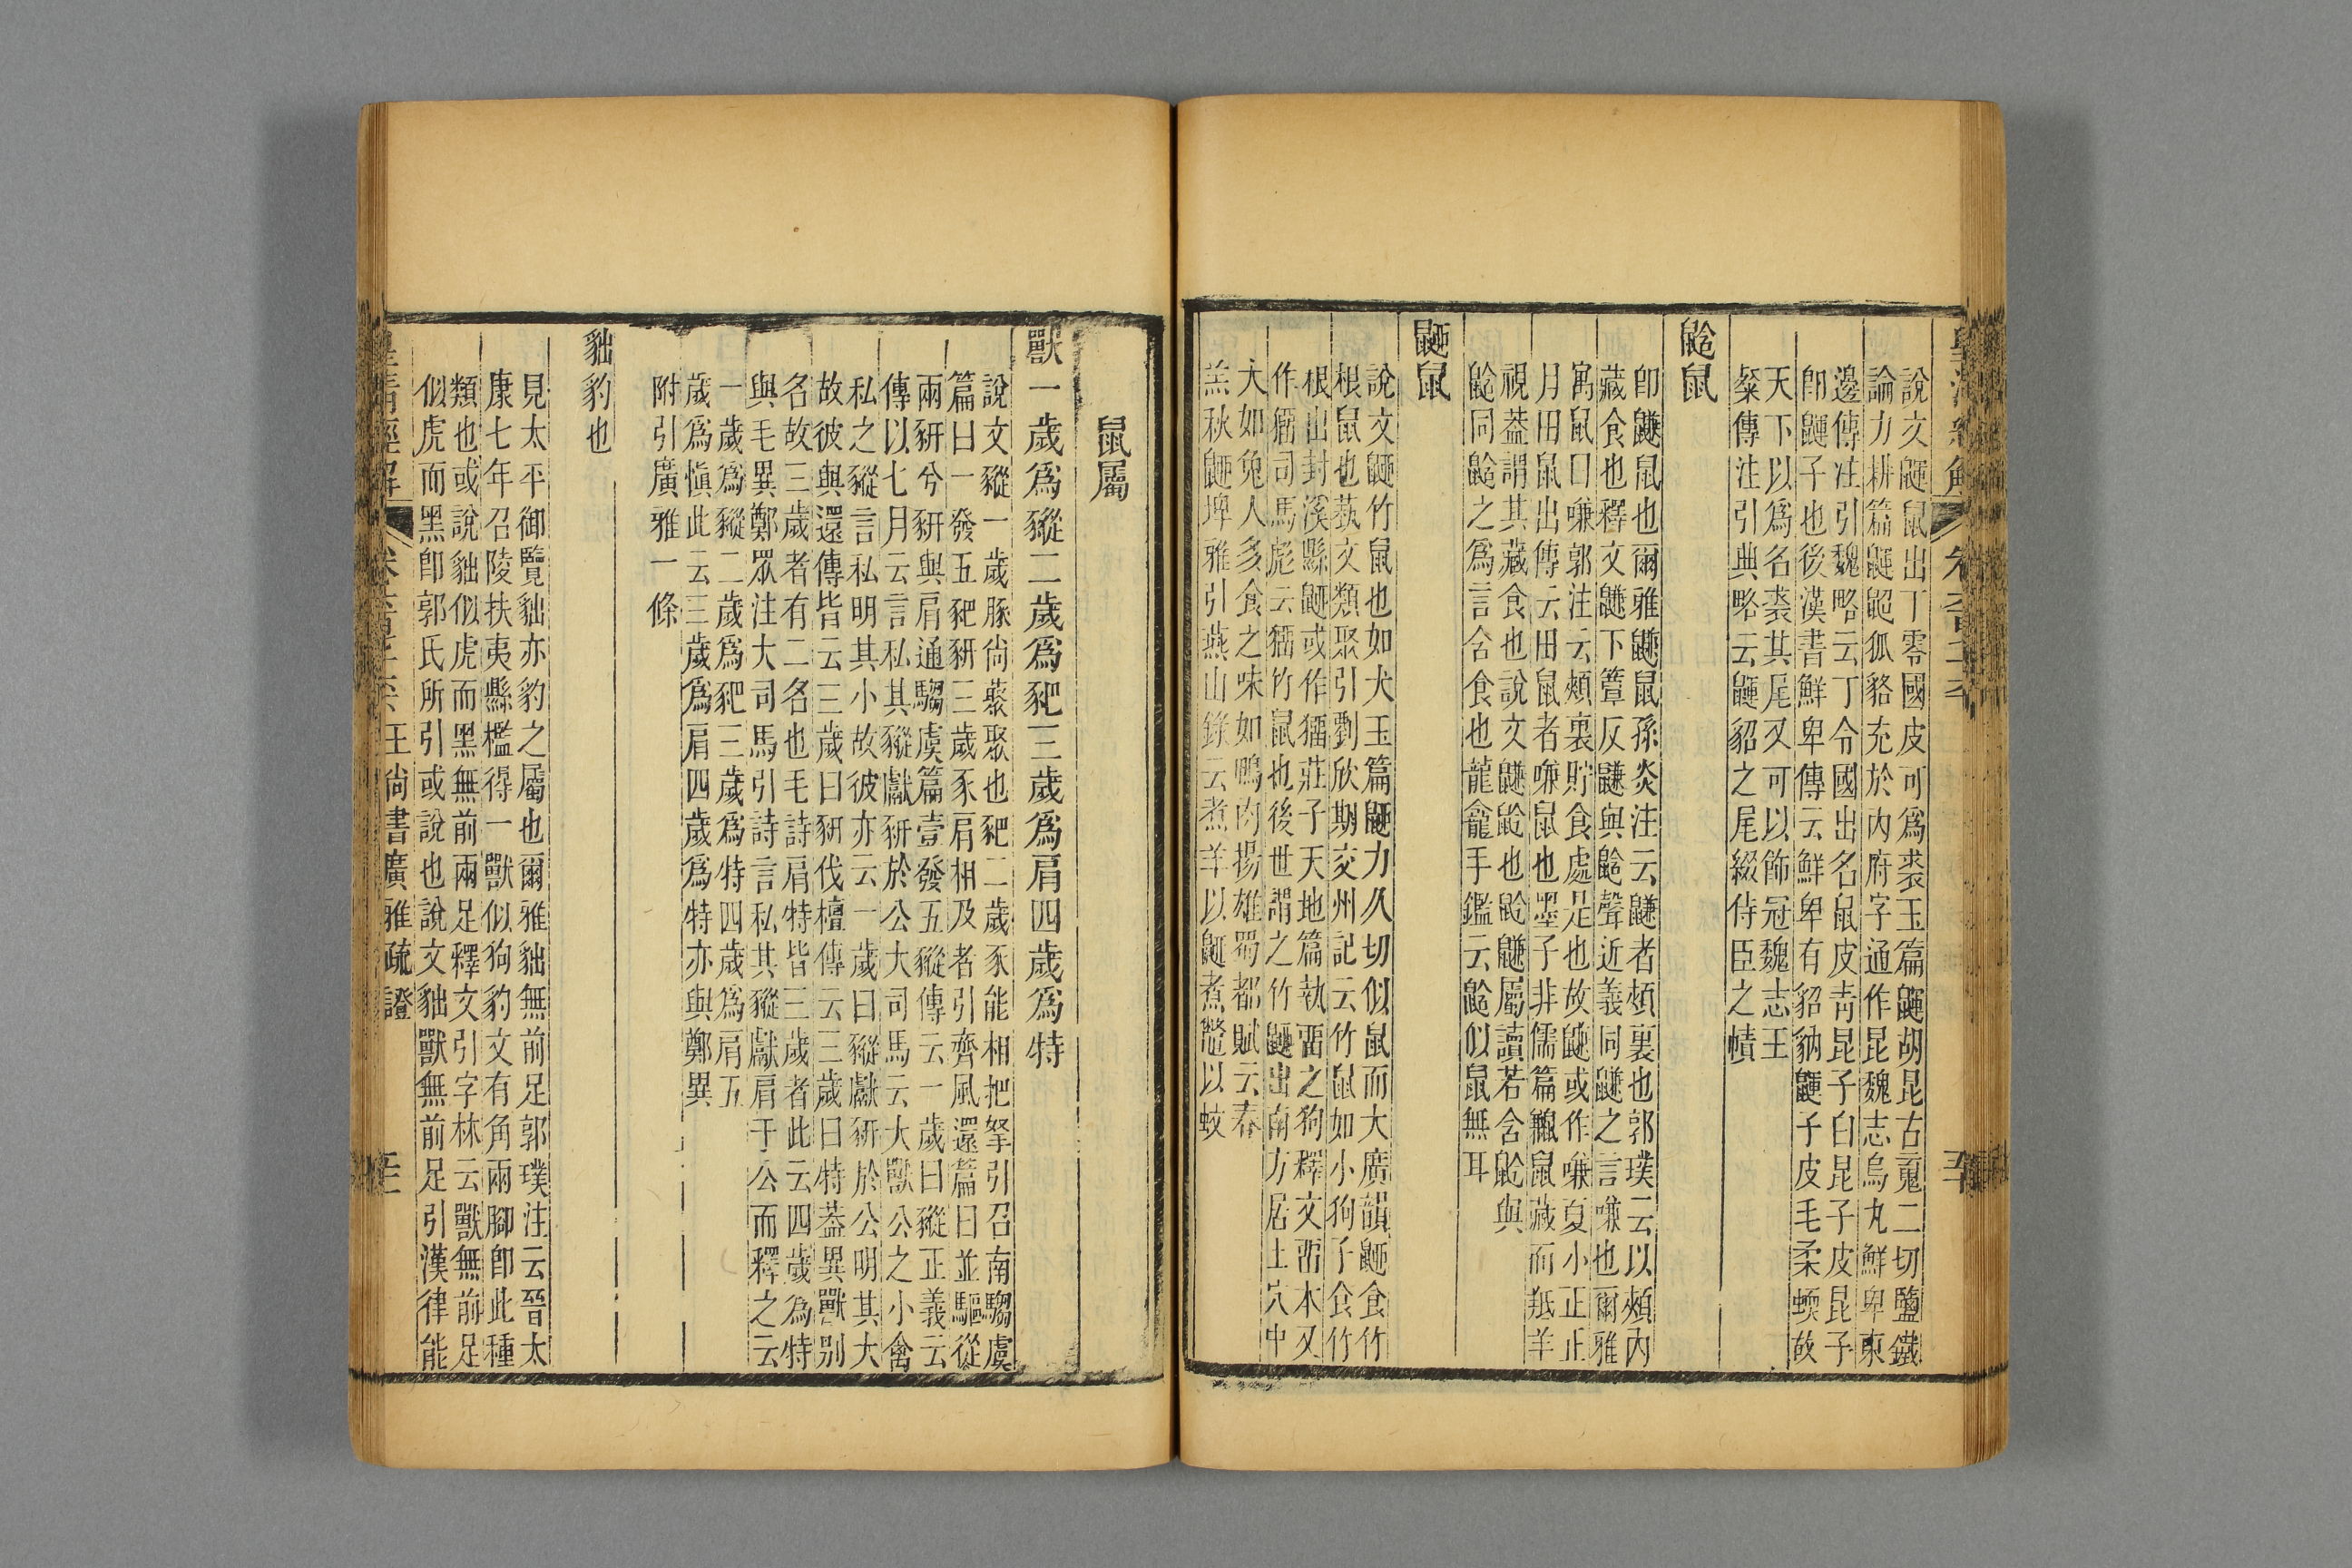 說文鼲鼠出丁零國皮可爲裘玉篇鼲胡昆古䰟二切鹽鐵
論力耕篇鼲鼦狐貉充於內府字通作昆魏志烏丸鮮卑東
邊傳注引魏略云丁令國出名鼠皮靑昆子白昆子皮昆子
卽鼲子也後漢書鮮卑傳云鮮卑有貂豽鼲子皮毛柔蝡故
天下以爲名裘其尾又可以飾冠魏志王
粲傳注引典略云鼲貂之尾綴侍臣之幘
䶃鼠
卽鼸鼠也爾雅鼸鼠孫炎注云鼸者頰裏也郭璞云以頰內
藏食也釋文鼸下簟反鼸與䶃聲近義同鼸之言嗛也爾雅
寓鼠曰嗛郭注云頰裏貯食處是也故鼸或作嗛夏小正正
月田鼠出傳云田鼠者嗛鼠也墨子非儒篇鼸鼠藏而羝羊
視葢謂其藏食也說文鼸䶃也䶃鼸屬讀若含䶃與
䶃同䶃之爲言含食也龍龕手鑑云䶃似鼠無耳
鼫鼠
說文鼫竹鼠也如犬玉篇鼫力久切似鼠而大廣韻鼫食竹
根鼠也蓺文類聚引劉欣期交州記云竹鼠如小狗子食竹
根出封溪縣鼫或作猶莊子天地篇執畱之狗釋文畱本又
作㺠司馬彪云㺠竹鼠也後世謂之竹鼫出南方居土穴中
大如兔人多食之味如鴨肉揚雄蜀都賦云春
羔秋鼫埤雅引燕山錄云煮羊以鼫煮鼈以蚊
鼠屬
獸一歲爲豵二歲爲豝三歲爲肩四歲爲特
說文豵一歲豚尙叢聚也豝二歲豕能相把拏引召南騶虞
篇曰一發五豝豜三歲豕肩相及者引齊風還篇曰並驅從
兩豜兮豜與肩通騶虞篇壹發五豵傳云一歲曰豵正義云
傳以七月云言私其豵獻豜於公大司馬云大獸公之小禽
私之豵言私明其小故彼亦云一歲曰豵獻豜於公明其大
故彼與還傳皆云三歲曰豜伐檀傳云三歲曰特葢異獸别
名故三歲者有二名也毛詩肩特皆三歲者此云四歲爲特
與毛異鄭眾注大司馬引詩言私其豵獻肩于公而釋之云
一歲爲豵二歲爲豝三歲爲特四歲爲肩五
歲爲愼此云三歲爲肩四歲爲特亦與鄭異
附引廣雅一條
貀豹也
見太平御覽貀亦豹之屬也爾雅貀無前足郭璞注云晉太
康七年召陵扶夷縣檻得一獸似狗豹文有角兩腳卽此種
類也或說貀似虎而黑無前兩足釋文引字林云獸無前足
似虎而黑卽郭氏所引或說也說文貀獸無前足引漢律能
皇淸經解 王尙書廣雅疏證